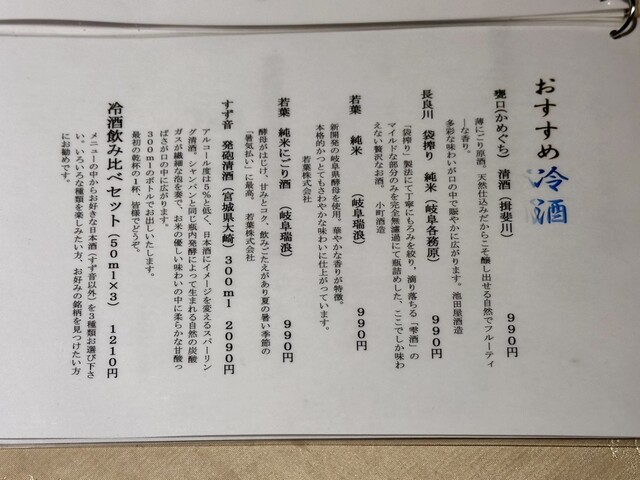 おすすめ 冷酒
甕口(かめぐち) 清酒(揖斐川) 990円
薄にごり原酒。天然仕込みだからこそ醸し出せる自然でフルーティ
ーな香り。
多彩な味わいが口の中で賑やかに広がります。 池田屋酒造
長良川 袋搾り 純米(岐阜各務原) 990円
「袋搾り」製法にて丁寧にもろみを絞り、滴り落ちる「雫酒」の
マイルドな部分のみを完全無濾過にて瓶詰めした、ここでしか味わ
えない贅沢なお酒。 小町酒造
若葉 純米 (岐阜瑞浪) 990円
新開発の岐阜県酵母を使用。華やかな香りが特徴。
本格的かつとてもさわやかな味わいに仕上がっています。
若葉株式会社
若葉 純米にごり酒 (岐阜瑞浪) 990円
酵母がはじけ、甘みとコク、飲みごたえがあり夏の暑い季節の
「暑気払い」に最高。 若葉株式会社
すず音 発砲清酒(宮城県大崎)300ml 2090円
アルコール度は5%と低く、日本酒にイメージを変えるスパーリン
グ清酒。シャンパンと同じ瓶内発酵によって生まれる自然の炭酸
ガスが繊細な泡を奏で、お米の優しい味わいの中に柔らかな甘酸っ
ぱさが口の中に広がります。
300mlのボトルでお出しいたします。
最初の乾杯の1杯、皆様でどうぞ。
冷酒飲み比べセット(50ml×3) 1210円
メニューの中からお好きな日本酒(すず音以外)を3種類お選び下さ
い。いろいろな種類を楽しみたい方、お好みの銘柄を見つけたい方
にお勧めです。